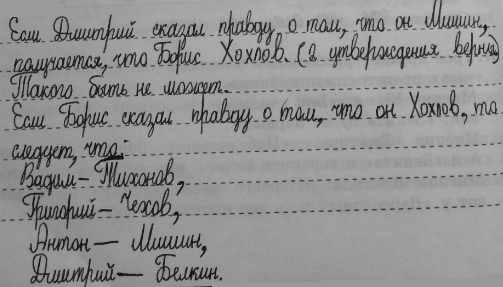 Если Дмитрий сказал правду о том, что он Мишин,
получается, что Борис Хохлов. (2 утверждения верны)
Такого быть не может.
Если Борис сказал правду о том, что он Хохлов, то
следует, что:
Вадим – Тихонов,
Григорий – Чехов,
Антон – Мишин,
Дмитрий – Белкин.